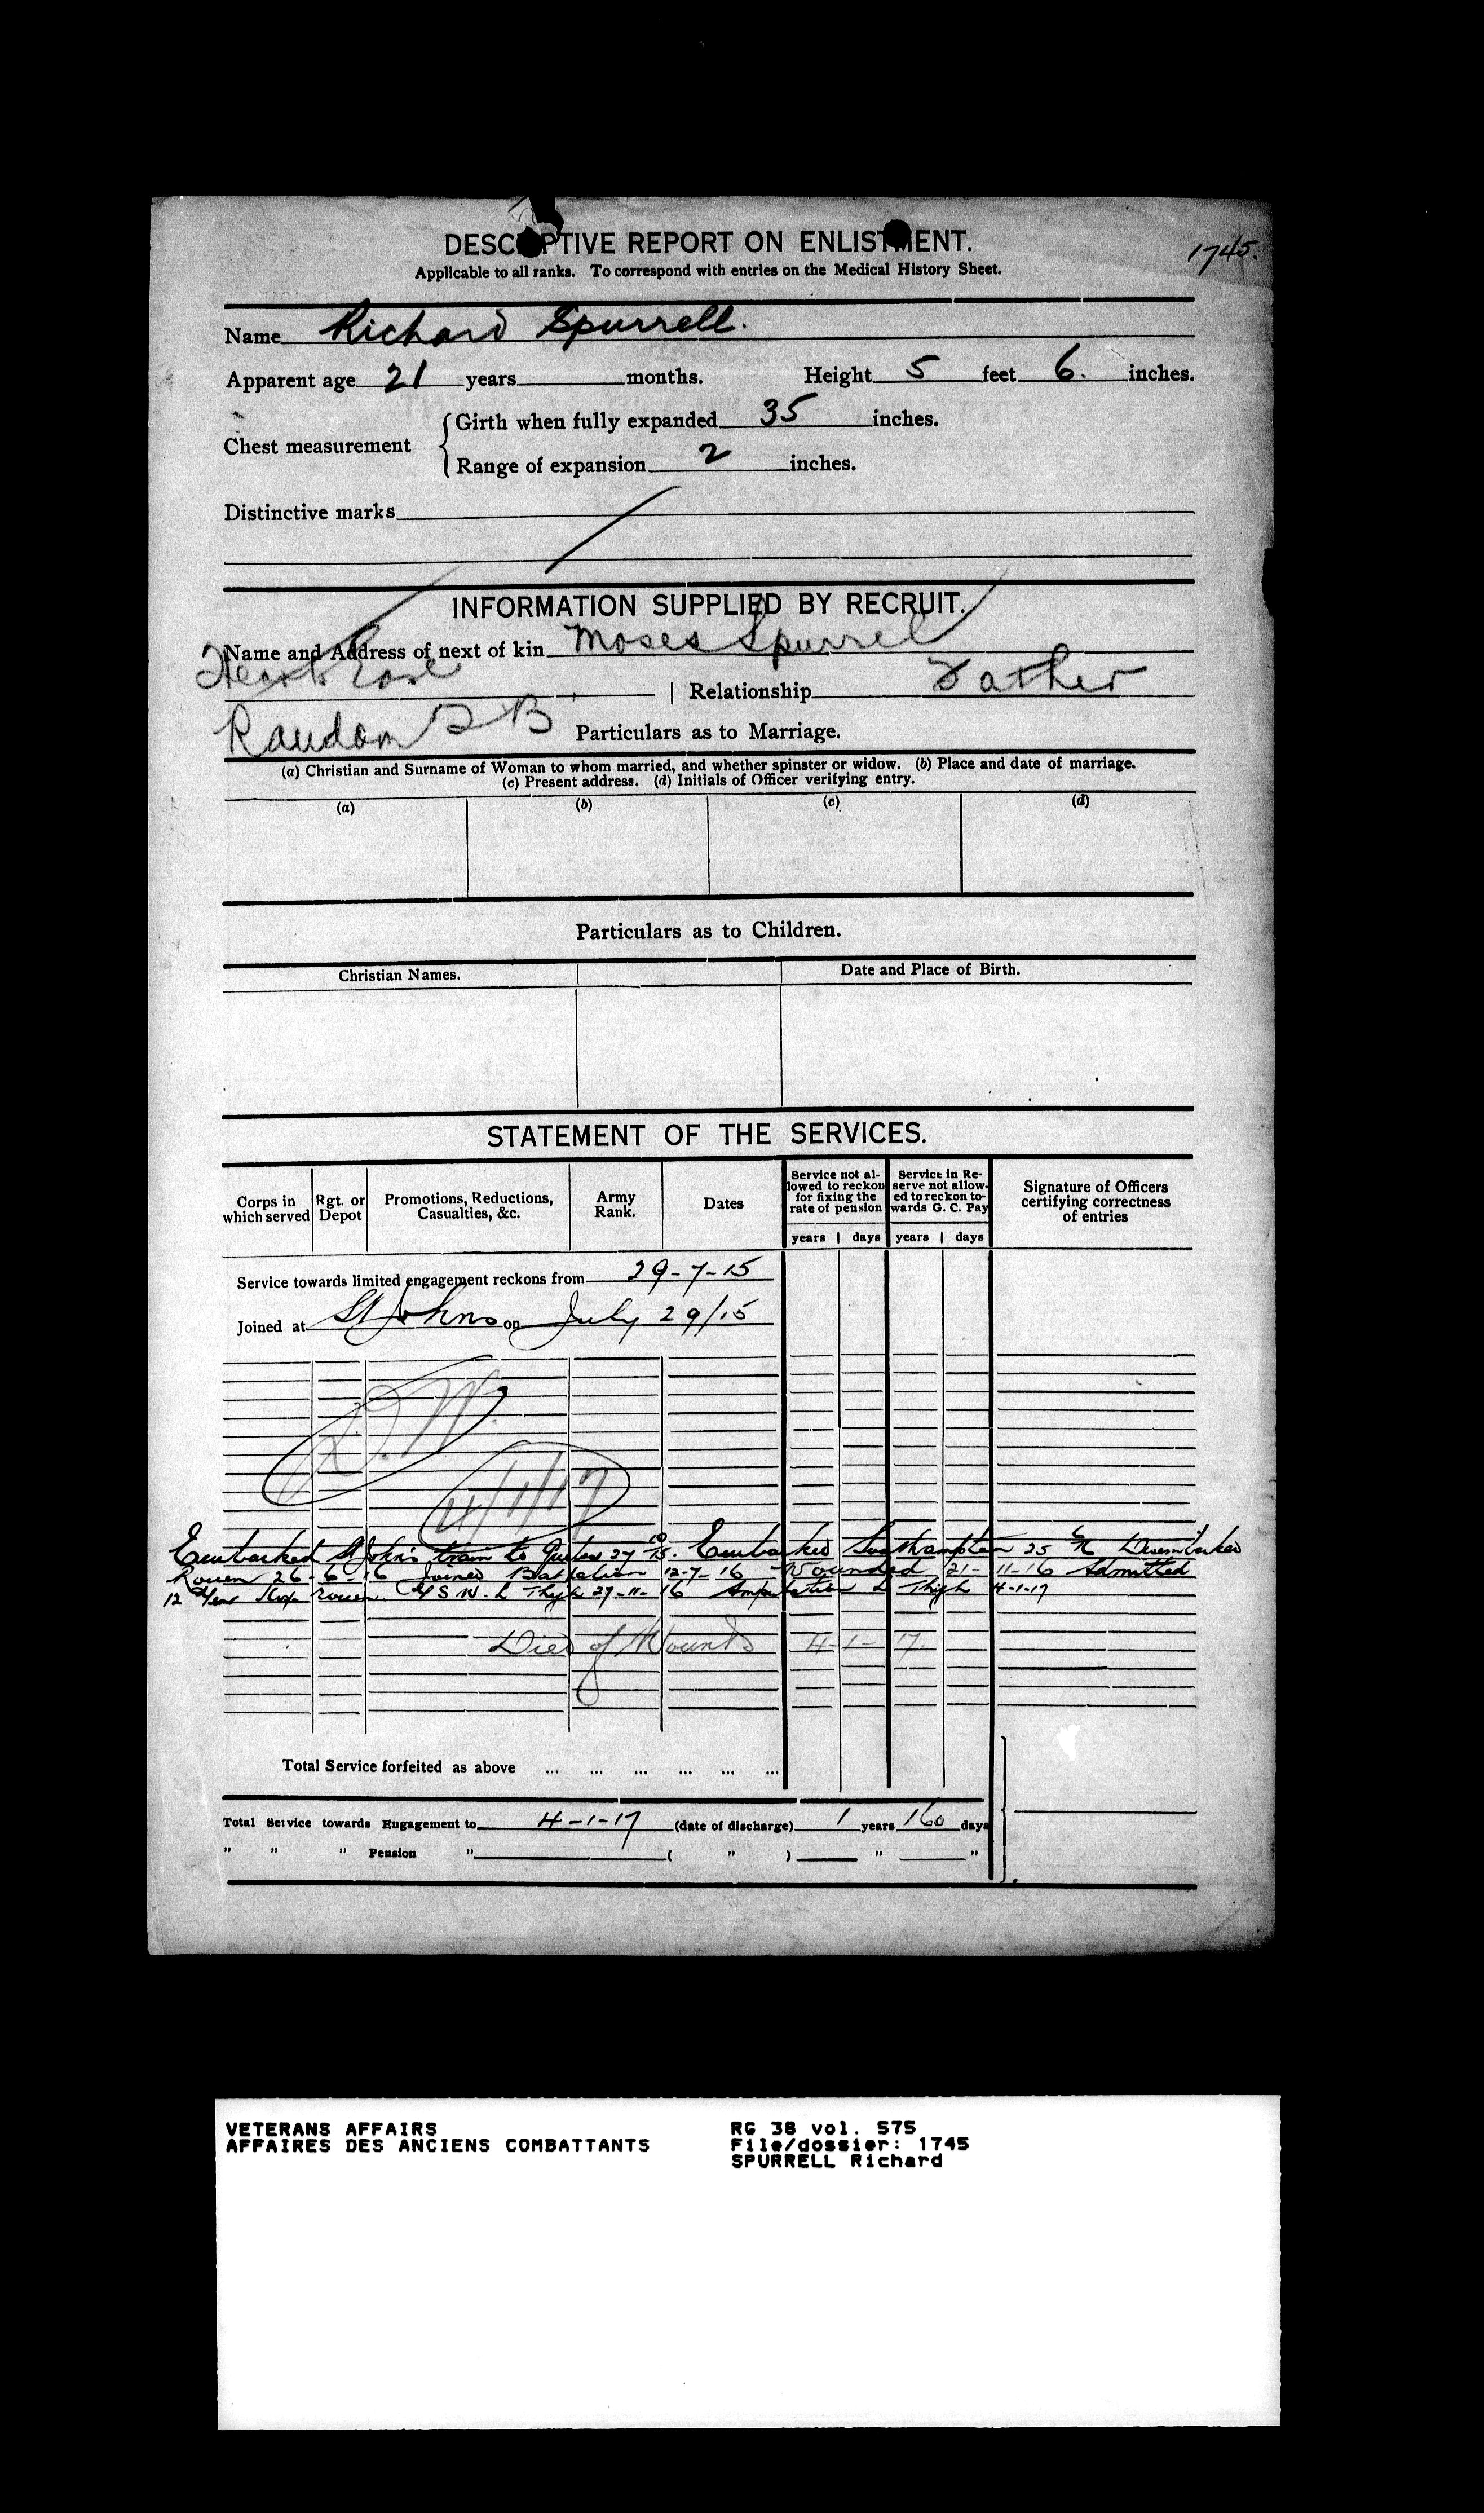 DESCRIPTIVE REPORT ON ENLISTMENT.
1745.
Applicable to all ranks. To correspond with entries on the Medical History Sheet.
Name Richard Spurrell.
Apparent age 21 years months. Height 5 feet 6. inches.
Chest measurement { Girth when fully expanded 35 inches.
Range of expansion 2 inches.
Distinctive marks
INFORMATION SUPPLIED BY RECRUIT.
Name and Address of next of kin Moses Spurrel
Hearts Ease | Relationship Father
Random T B
Particulars as to Marriage.
(a) Christian and Surname of Woman to whom married, and whether spinster or widow. (b) Place and date of marriage.
(c) Present address. (d) Initials of Officer verifying entry.
(a) (b) (c) (d)
Particulars as to Children.
Christian Names. Date and Place of Birth.
STATEMENT OF THE SERVICES.
Corps in which served Rgt. or Depot Promotions, Reductions, Casualties, &c. Army Rank. Dates Service not allowed to reckon for fixing the rate of pension Service in Reserve not allowed to reckon towards G. C. Pay Signature of Officers certifying correctness of entries
years | days years | days
Service towards limited engagement reckons from 29-7-15
Joined at St Johns on July 29/15
D.W.
4/1/17
Embarked St John's train to Quebec 27 10 15. Embarked Southampton 25 6/16 Disembarked
Rouen 26-6-16 Joined Battalion 12-7-16 Wounded 21-11-16 Admitted
12 Genl Hosp Rouen. G S W. L Thigh 27-11-16 Amputation L Thigh 4-1-17
Died of Wounds 4-1-17.
Total Service forfeited as above ... ... ... ... ... ...
Total Service towards Engagement to 4-1-17 (date of discharge) 1 years 160 days
" " " Pension " ( " ) " "
VETERANS AFFAIRS RG 38 vol. 575
AFFAIRES DES ANCIENS COMBATTANTS File/dossier: 1745
SPURRELL Richard